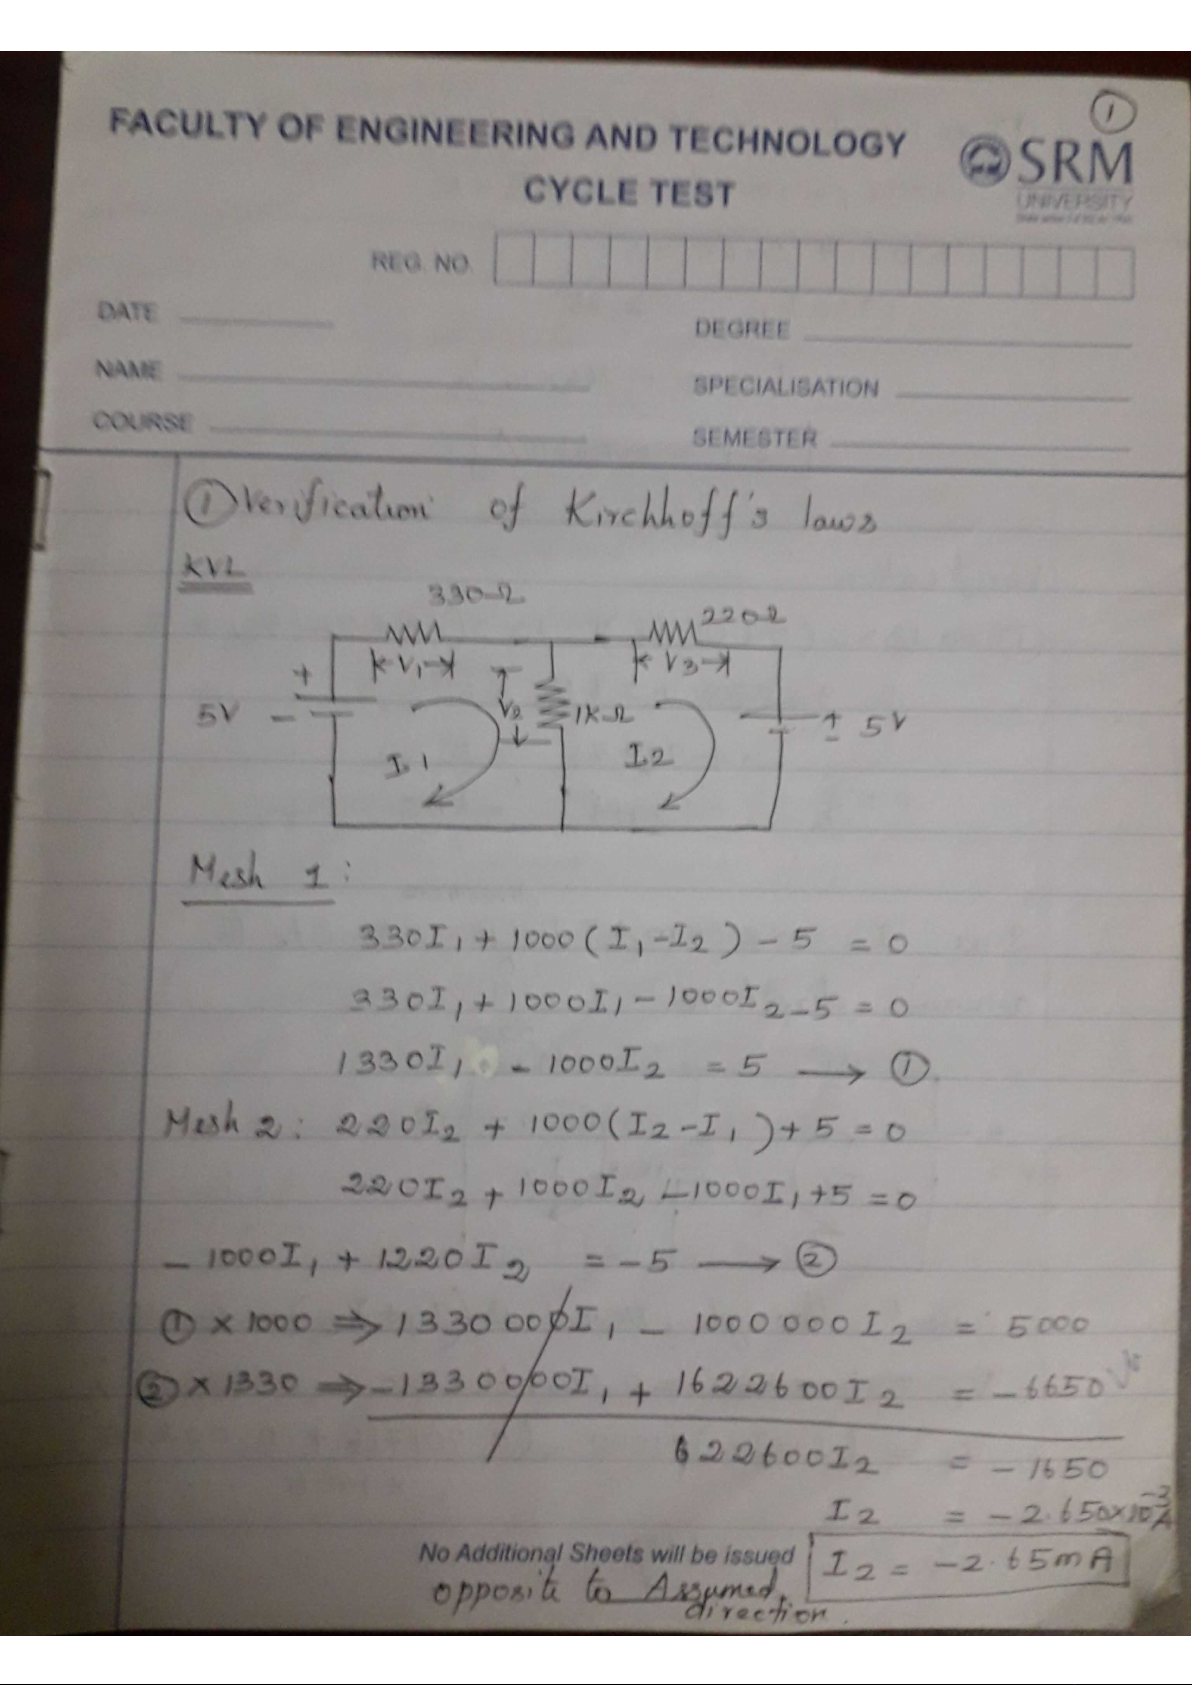 1
FACULTY OF ENGINEERING AND TECHNOLOGY
CYCLE TEST
SRM
UNIVERSITY
REG. NO.
DATE
DEGREE
NAME
SPECIALISATION
COURSE
SEMESTER
① Verification of Kirchhoff's laws
KVL
330Ω
220Ω
V1
V3
+
5V
-
V2
1KΩ
+
-
5V
I1
I2
Mesh 1:
330I1 + 1000(I1-I2) - 5 = 0
330I1 + 1000I1 - 1000I2 - 5 = 0
1330I1 - 1000I2 = 5 → ①
Mesh 2: 220I2 + 1000(I2-I1) + 5 = 0
220I2 + 1000I2 - 1000I1 + 5 = 0
-1000I1 + 1220I2 = -5 → ②
① × 1000 ⇒ 1330000I1 - 1000000I2 = 5000
② × 1330 ⇒ -1330000I1 + 1622600I2 = -6650
622600I2 = -1650
I2 = -2.650×10⁻³A
No Additional Sheets will be issued
I2 = -2.65mA
opposite to Assumed
direction.